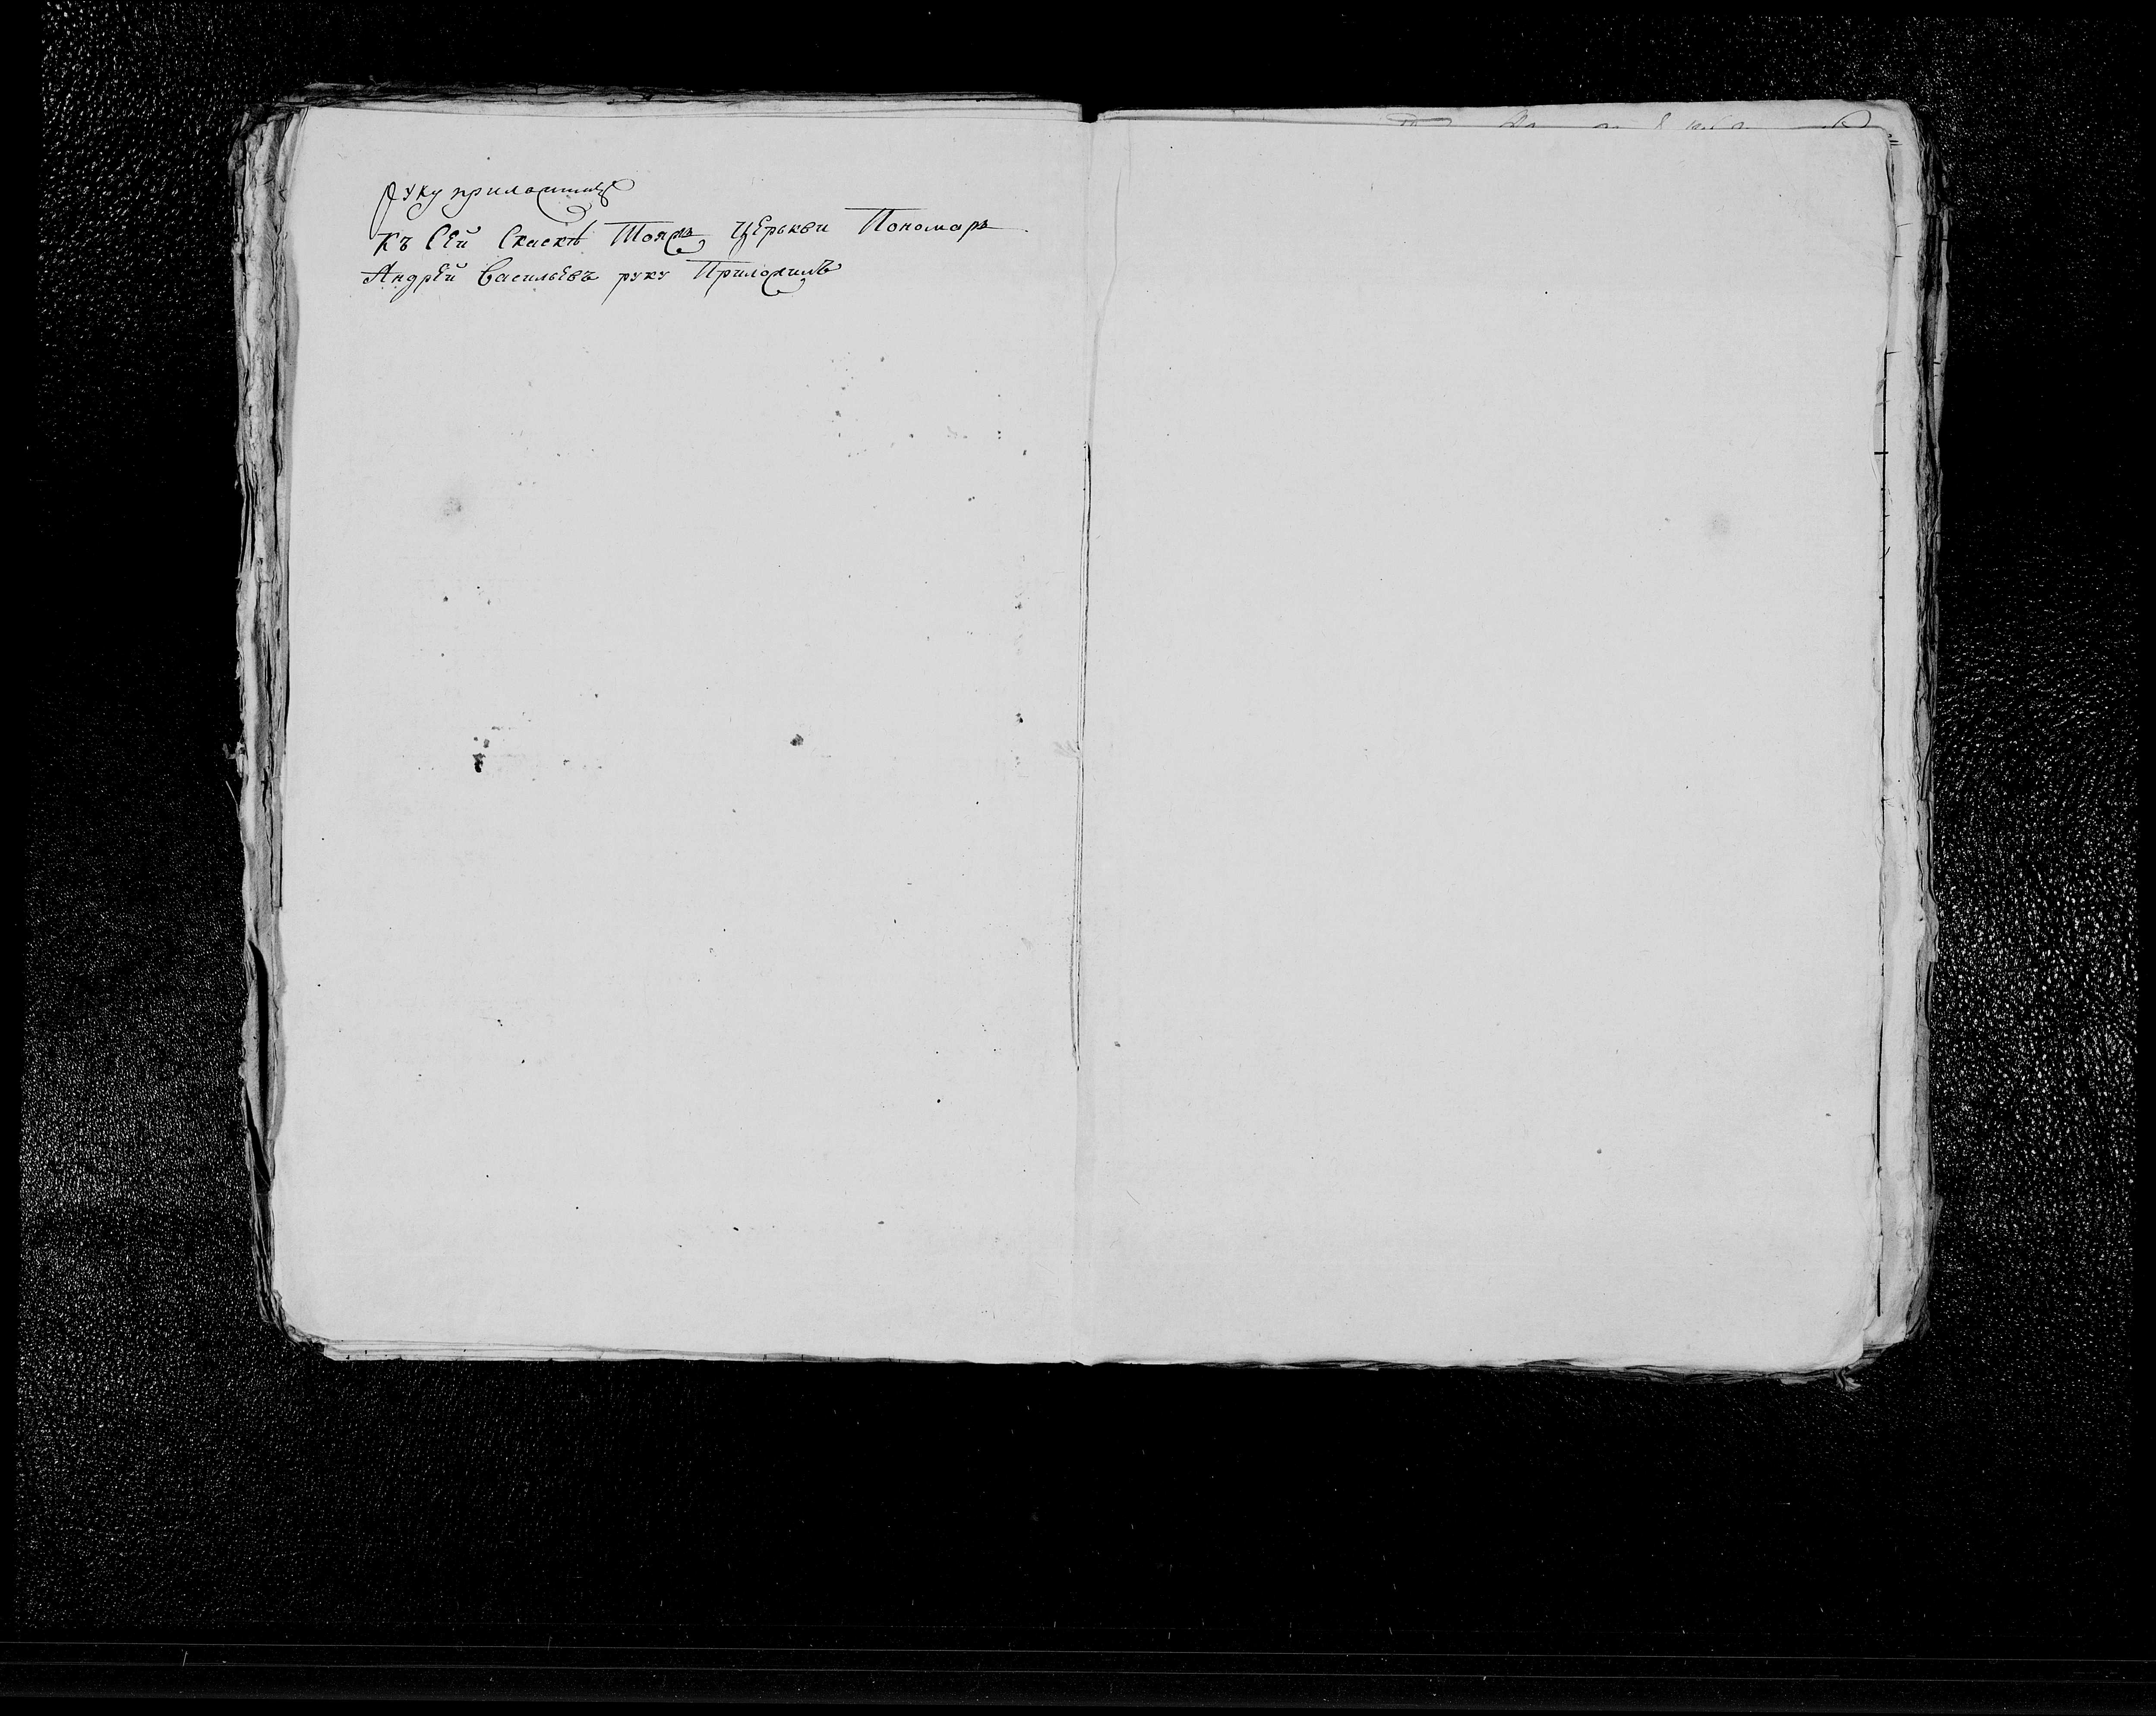 руку приложилъ
Къ сей скаскѣ тояжъ церькви пономарь
Андрей Васильевъ руку приложилъ